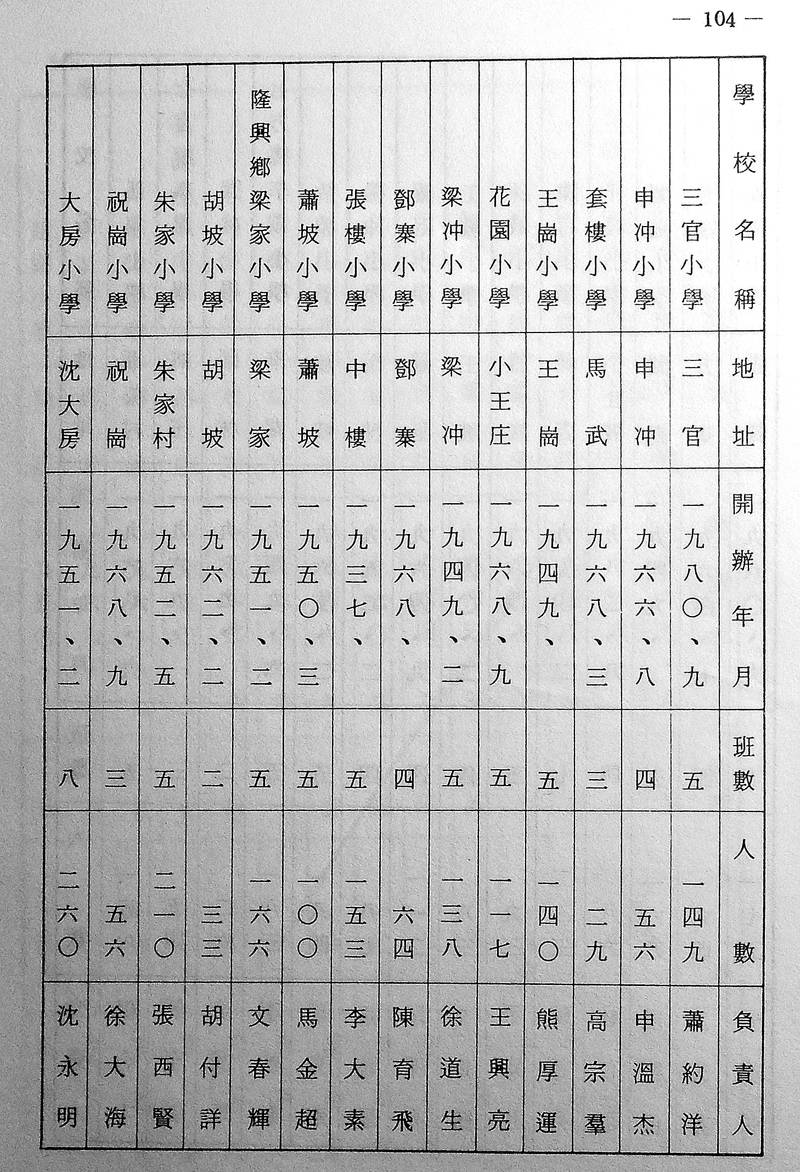 — 104 —
學校名稱 地址 開辦年月 班數 人數 負責人
三官小學 三官 一九八〇、九 五 一四九 蕭約洋
申冲小學 申冲 一九六六、八 四 五六 申溫杰
套樓小學 馬武 一九六八、三 三 二九 高宗羣
王崗小學 王崗 一九四九、 五 一四〇 熊厚運
花園小學 小王庄 一九六八、九 五 一一七 王興亮
梁冲小學 梁冲 一九四九、二 五 一三八 徐道生
鄧寨小學 鄧寨 一九六八、 四 六四 陳育飛
張樓小學 中樓 一九三七、 五 一五三 李大素
蕭坡小學 蕭坡 一九五〇、三 五 一〇〇 馬金超
隆興鄉梁家小學 梁家 一九五一、二 五 一六六 文春輝
胡坡小學 胡坡 一九六二、二 二 三三 胡付詳
朱家小學 朱家村 一九五二、五 五 二一〇 張西賢
祝崗小學 祝崗 一九六八、九 三 五六 徐大海
大房小學 沈大房 一九五一、二 八 二六〇 沈永明